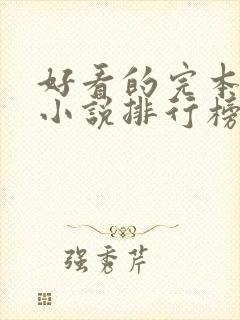 好看的完本
小说排行榜
强秀芹